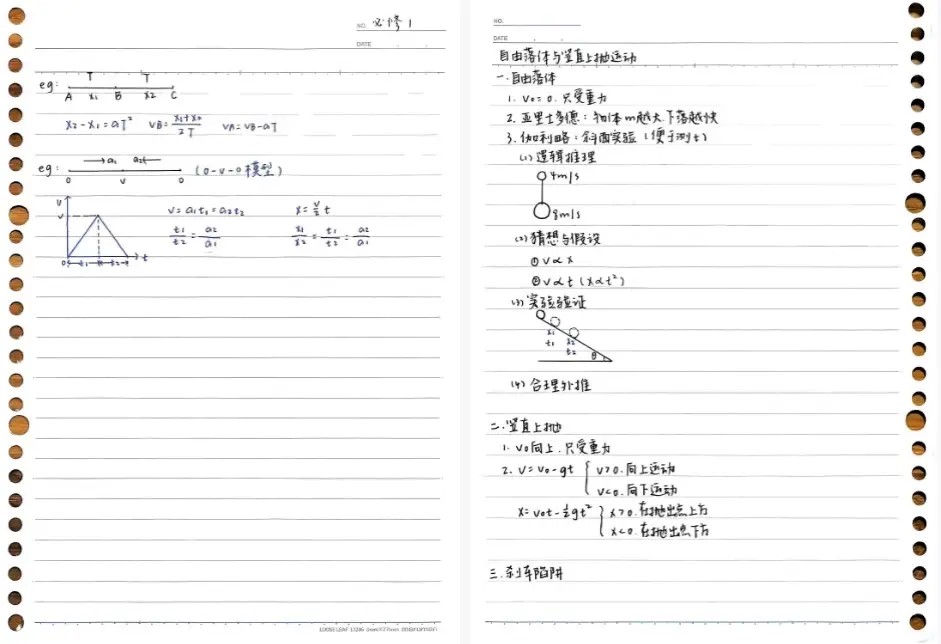 NO. 必修1
DATE
T T
eg:
A x₁ B x₂ C
x₂-x₁=aT² vB=x₁+x₂/2T vA=vB-aT
→a₁ a₂←
eg: (0-v-0模型)
0 v 0
v
v
0 t₁ t₂ t
v=a₁t₁=a₂t₂ x=v/2 t
t₁/t₂=a₂/a₁ x₁/x₂=t₁/t₂=a₂/a₁
NO.
DATE
自由落体与竖直上抛运动
一.自由落体
1. v₀=0.只受重力
2. 亚里士多德:物体m越大.下落越快
3. 伽利略:斜面实验(便于测t)
(1)逻辑推理
4m/s
8m/s
(2)猜想与假设
①v∝x
②v∝t(x∝t²)
(3)实验验证
x₁
t₁ x₂
t₂ θ
(4)合理外推
二.竖直上抛
1. v₀向上.只受重力
2. v=v₀-gt { v>0.向上运动
v<0.向下运动
x=v₀t-½gt² } x>0.在抛出点上方
x<0.在抛出点下方
三.刹车陷阱